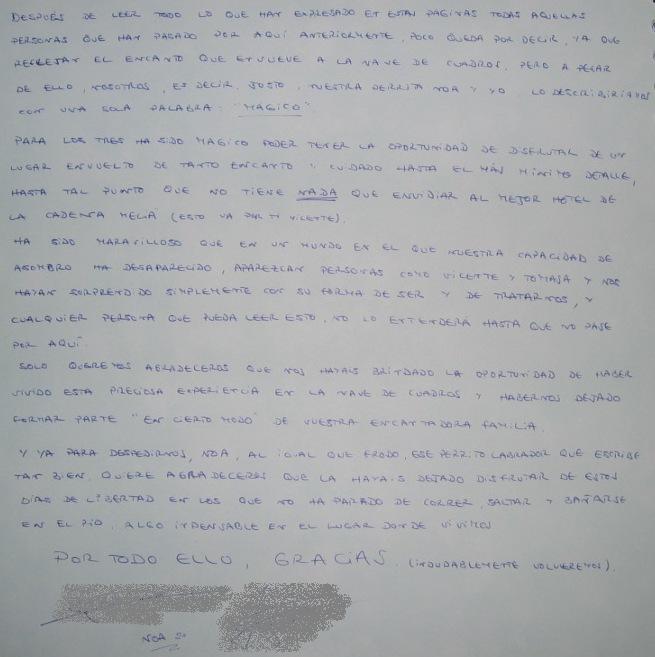 DESPUÉS DE LEER TODO LO QUE HAN EXPRESADO EN ESTAS PAGINAS TODAS AQUELLAS
PERSONAS QUE HAN PASADO POR AQUÍ ANTERIORMENTE, POCO QUEDA POR DECIR, YA QUE
REFLEJAN EL ENCANTO QUE ENVUELVE A LA NAVE DE CUADROS, PERO A PESAR
DE ELLO, NOSOTROS, ES DECIR, JUSTO, NUESTRA PERRITA NOA Y YO, LO DESCRIBIRIAMOS
CON UNA SOLA PALABRA: "MAGICO".
PARA LOS TRES HA SIDO MAGICO PODER TENER LA OPORTUNIDAD DE DISFRUTAR DE UN
LUGAR ENVUELTO DE TANTO ENCANTO Y CUIDADO HASTA EL MÁS MÍNIMO DETALLE,
HASTA TAL PUNTO QUE NO TIENE NADA QUE ENVIDIAR AL MEJOR HOTEL DE
LA CADENA MELIÁ (ESTO VA POR TI VICENTE).
HA SIDO MARAVILLOSO QUE EN UN MUNDO EN EL QUE NUESTRA CAPACIDAD DE
ASOMBRO HA DESAPARECIDO, APAREZCAN PERSONAS COMO VICENTE Y TOMASA Y NOS
HAYAN SORPRENDIDO SIMPLEMENTE CON SU FORMA DE SER Y DE TRATARNOS, Y
CUALQUIER PERSONA QUE PUEDA LEER ESTO, NO LO ENTENDERÁ HASTA QUE NO PASE
POR AQUÍ.
SOLO QUEREMOS AGRADECEROS QUE NOS HAYAIS BRINDADO LA OPORTUNIDAD DE HABER
VIVIDO ESTA PRECIOSA EXPERIENCIA EN LA NAVE DE CUADROS Y HABERNOS DEJADO
FORMAR PARTE "EN CIERTO MODO" DE VUESTRA ENCANTADORA FAMILIA.
Y YA PARA DESPEDIRNOS, NOA, AL IGUAL QUE FRODO, ESE PERRITO LABRADOR QUE ESCRIBE
TAN BIEN, QUIERE AGRADECEROS QUE LA HAYAIS DEJADO DISFRUTAR DE ESTOS
DÍAS DE LIBERTAD EN LOS QUE NO HA PARADO DE CORRER, SALTAR Y BAÑARSE
EN EL RÍO, ALGO IMPENSABLE EN EL LUGAR DONDE VIVIMOS
POR TODO ELLO, GRACIAS. (INDUDABLEMENTE VOLVEREMOS).
NOA